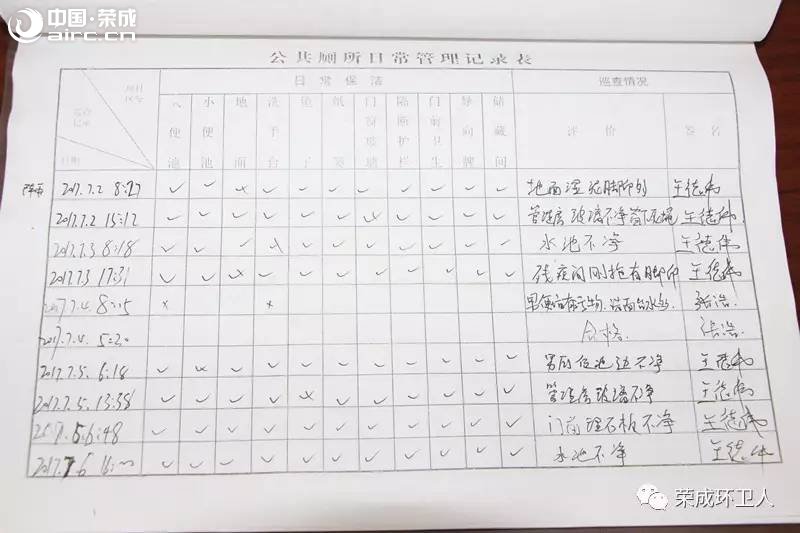 中国·荣成
airc.cn
公共厕所日常管理记录表
日常保洁 巡查情况
日期
大便池 小便池 地面 洗手台 镜子 纸篓 门窗玻璃 隔断护栏 门前卫生 导向牌 储藏间 评价 签名
阵雨 2017.7.2 8:27 ✓ ✓ × ✓ ✓ ✓ ✓ ✓ ✓ ✓ ✓ 地面湿有脚印 王德伟
2017.7.2 15:12 ✓ ✓ ✓ ✓ ✓ ✓ ✓ ✓ ✓ ✓ 管理房玻璃不净 王德伟
2017.7.3 8:18 ✓ ✓ ✓ × ✓ ✓ ✓ ✓ ✓ ✓ ✓ 水池不净 王德伟
2017.7.3 17:31 ✓ ✓ × ✓ ✓ ✓ ✓ ✓ ✓ ✓ ✓ 残疾间刚拖有脚印 王德伟
2017.7.4. 8:15 × × 张浩
2017.7.4. 5:20 合格. 张浩
2017.7.5. 6:18 ✓ × ✓ ✓ ✓ ✓ ✓ ✓ ✓ ✓ ✓ 男厕 池边不净 王德伟
2017.7.5. 13:38 ✓ ✓ ✓ ✓ × ✓ ✓ ✓ ✓ ✓ ✓ 管理房玻璃不净 王德伟
6:48 ✓ ✓ ✓ ✓ ✓ ✓ ✓ ✓ ✓ ✓ ✓ 门前理石板不净 王德伟
2017.7.6 ✓ ✓ ✓ ✓ ✓ ✓ ✓ ✓ ✓ ✓ ✓ 水池不净 王德伟
荣成环卫人